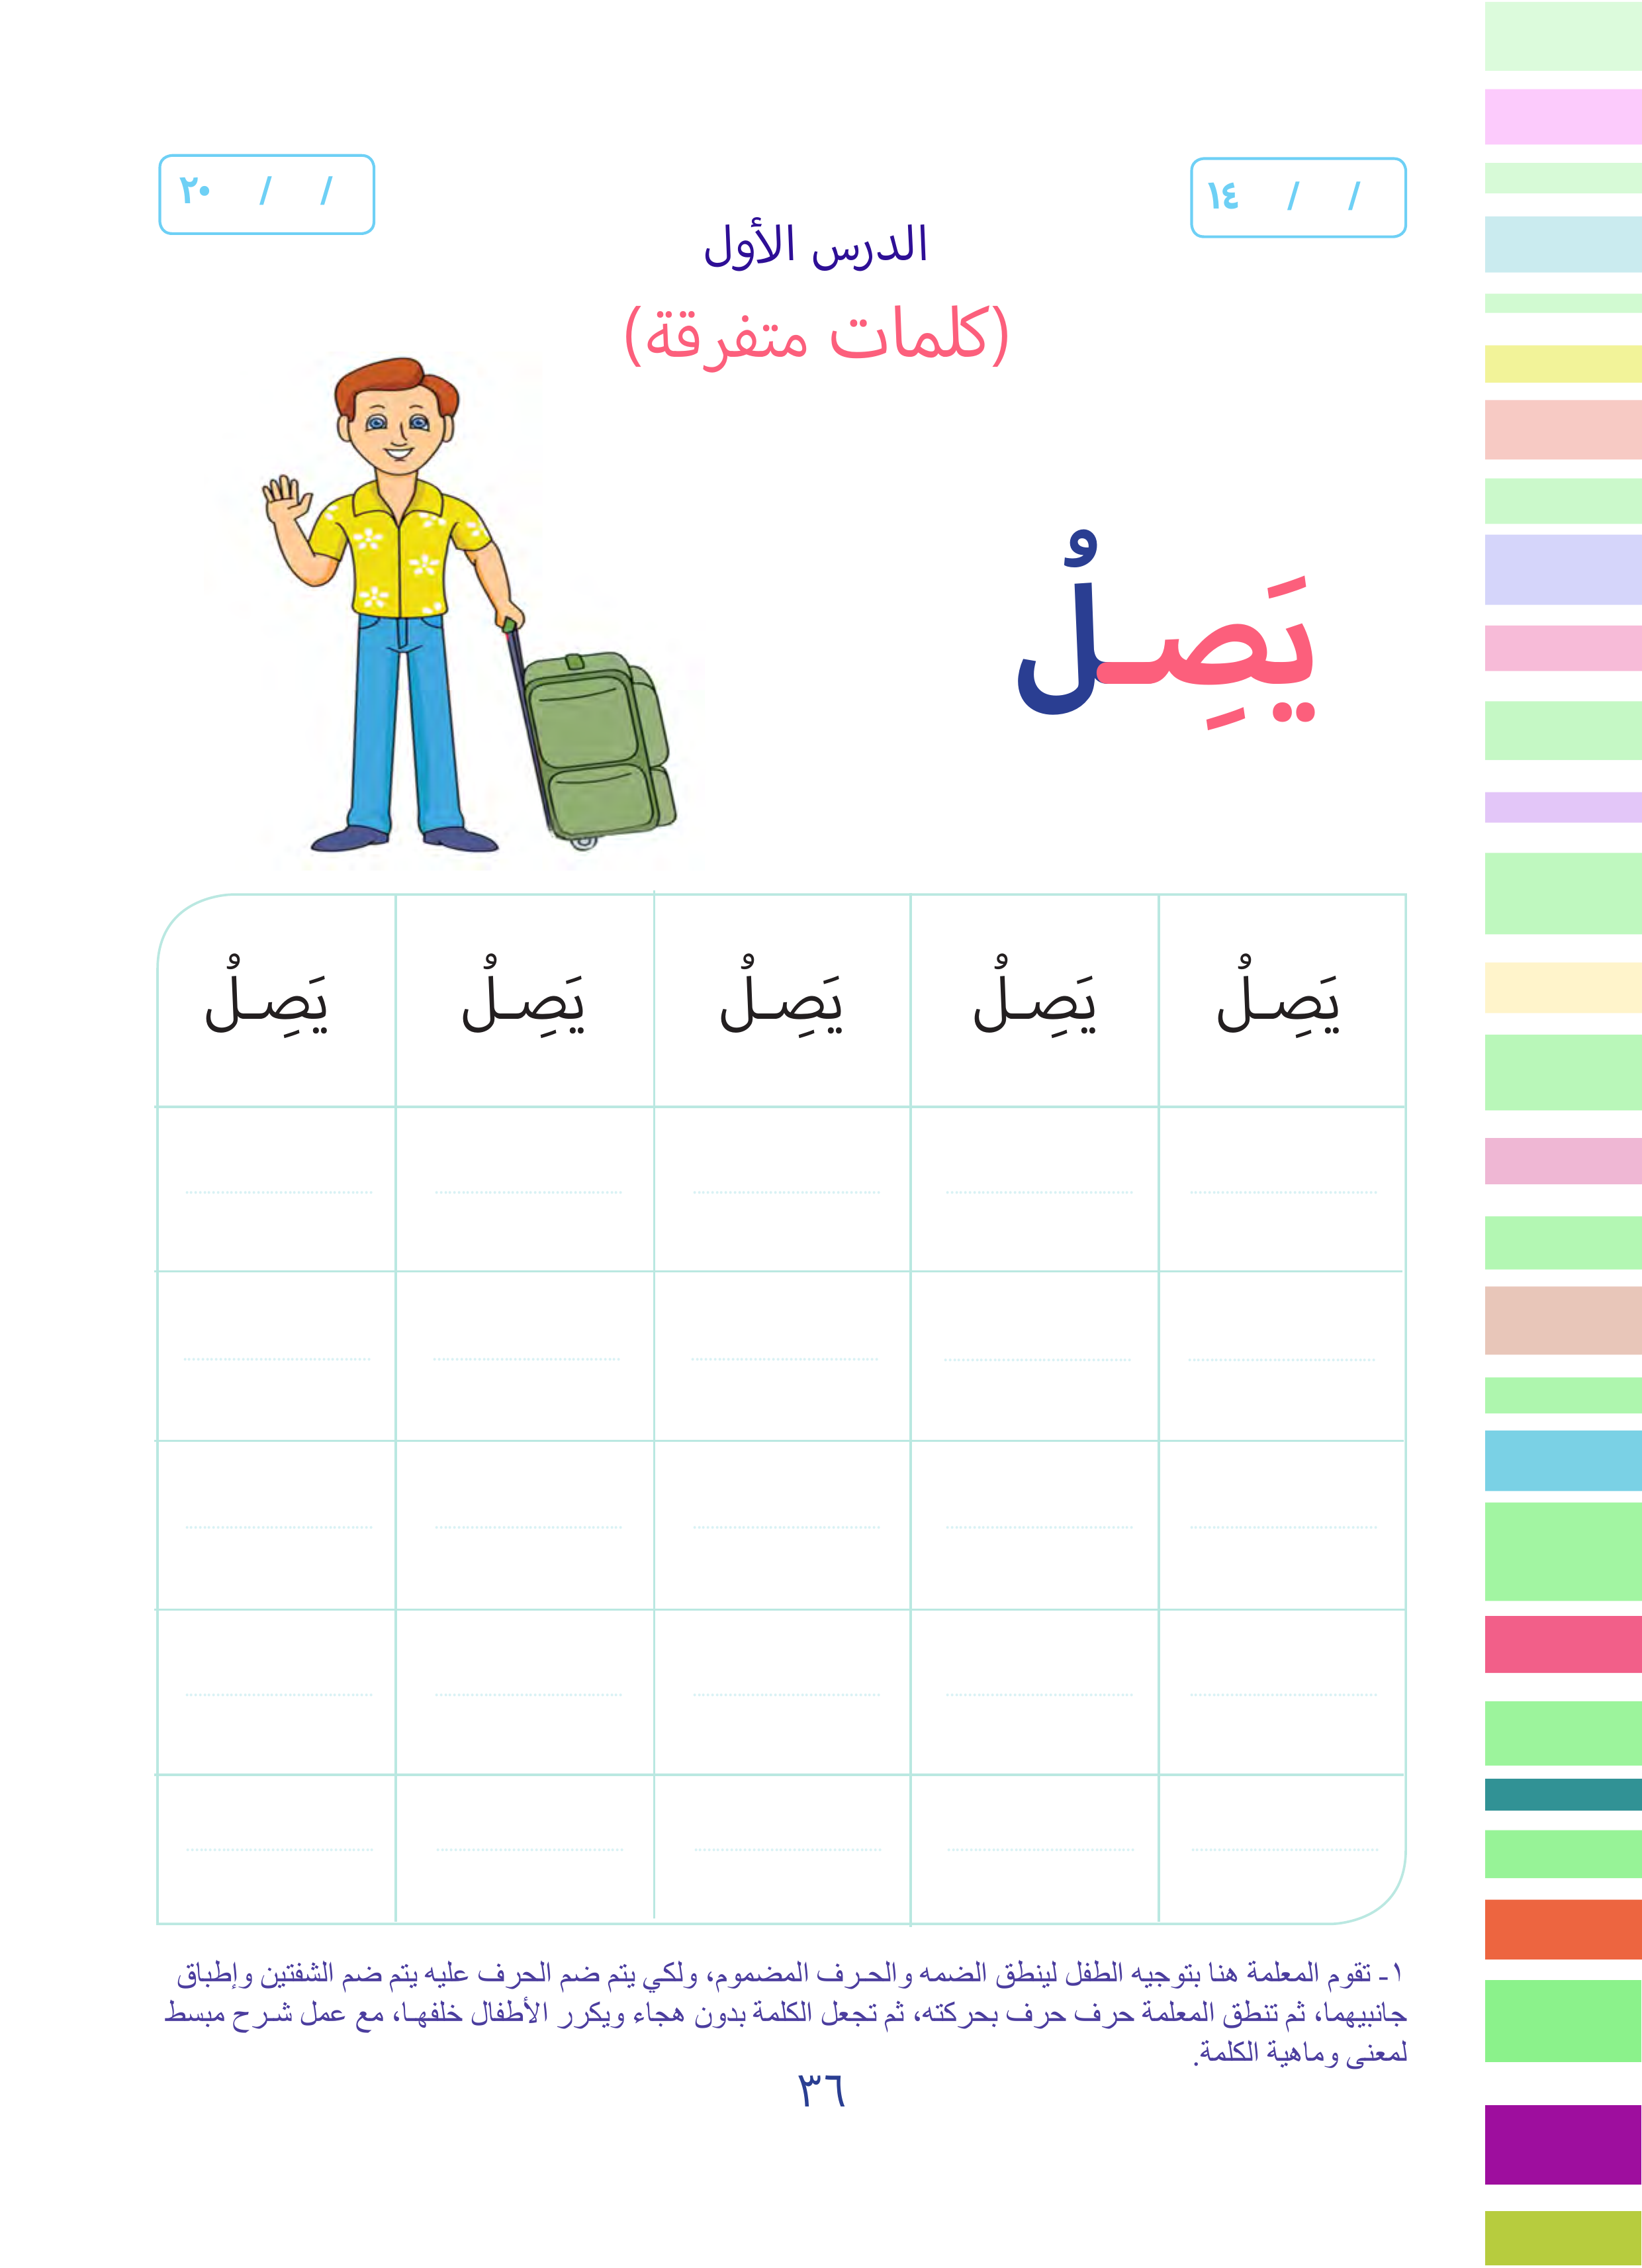 / / ١٤
/ / ٢٠
الدرس الأول
(كلمات متفرقة)
يَصِـلُ
يَصِـلُ يَصِـلُ يَصِـلُ يَصِـلُ يَصِـلُ
١- تقوم المعلمة هنا بتوجيه الطفل لينطق الضمه والحـرف المضموم، ولكي يتم ضم الحرف عليه يتم ضم الشفتين وإطباق
جانبيهما، ثم تنطق المعلمة حرف حرف بحركته، ثم تجعل الكلمة بدون هجاء ويكرر الأطفال خلفهـا، مع عمل شـرح مبسط
لمعنى وماهية الكلمة.
٣٦